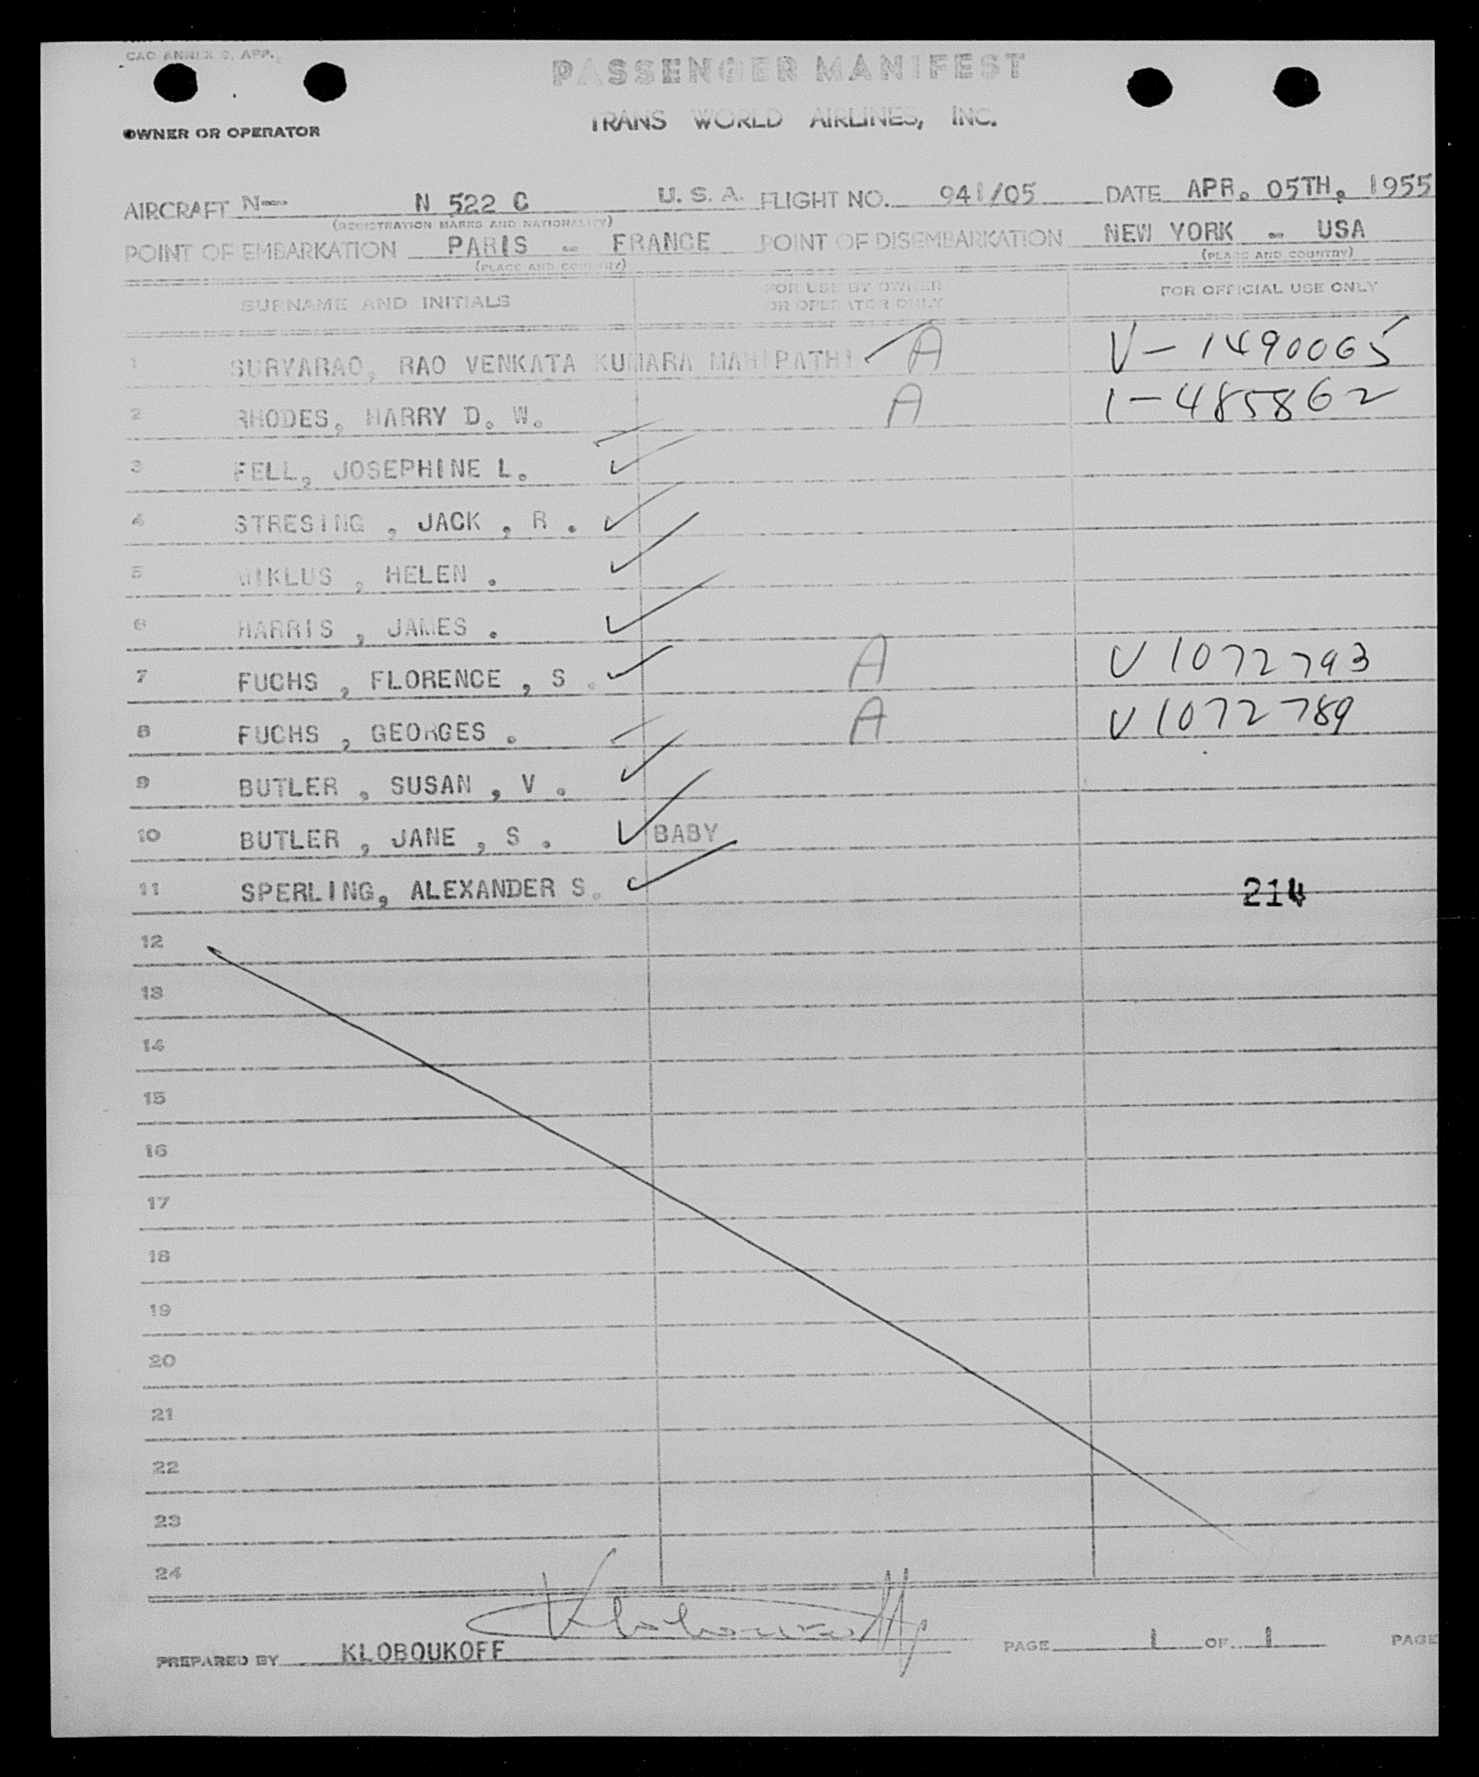 CAO ANNEX 9, APP.
PASSENGER MANIFEST
OWNER OR OPERATOR TRANS WORLD AIRLINES, INC.
AIRCRAFT N— N 522 C U. S. A. FLIGHT NO. 941/05 DATE APR. 05TH, 1955
(REGISTRATION MARKS AND NATIONALITY)
POINT OF EMBARKATION PARIS - FRANCE POINT OF DISEMBARKATION NEW YORK - USA
(PLACE AND COUNTRY) (PLACE AND COUNTRY)
SURNAME AND INITIALS FOR USE BY OWNER OR OPERATOR ONLY FOR OFFICIAL USE ONLY
1 SURYARAO, RAO VENKATA KUMARA MAHIPATHI A V-1490065
2 RHODES, HARRY D. W. A 1-485862
3 FELL, JOSEPHINE L.
4 STRESING , JACK , R .
5 MIKLUS , HELEN .
6 HARRIS , JAMES .
7 FUCHS , FLORENCE , S . A V1072793
8 FUCHS , GEORGES . A V1072789
9 BUTLER , SUSAN , V .
10 BUTLER , JANE , S . BABY
11 SPERLING, ALEXANDER S. 214
12
13
14
15
16
17
18
19
20
21
22
23
24
Kloboukoff
PREPARED BY KLOBOUKOFF PAGE 1 OF 1 PAGE